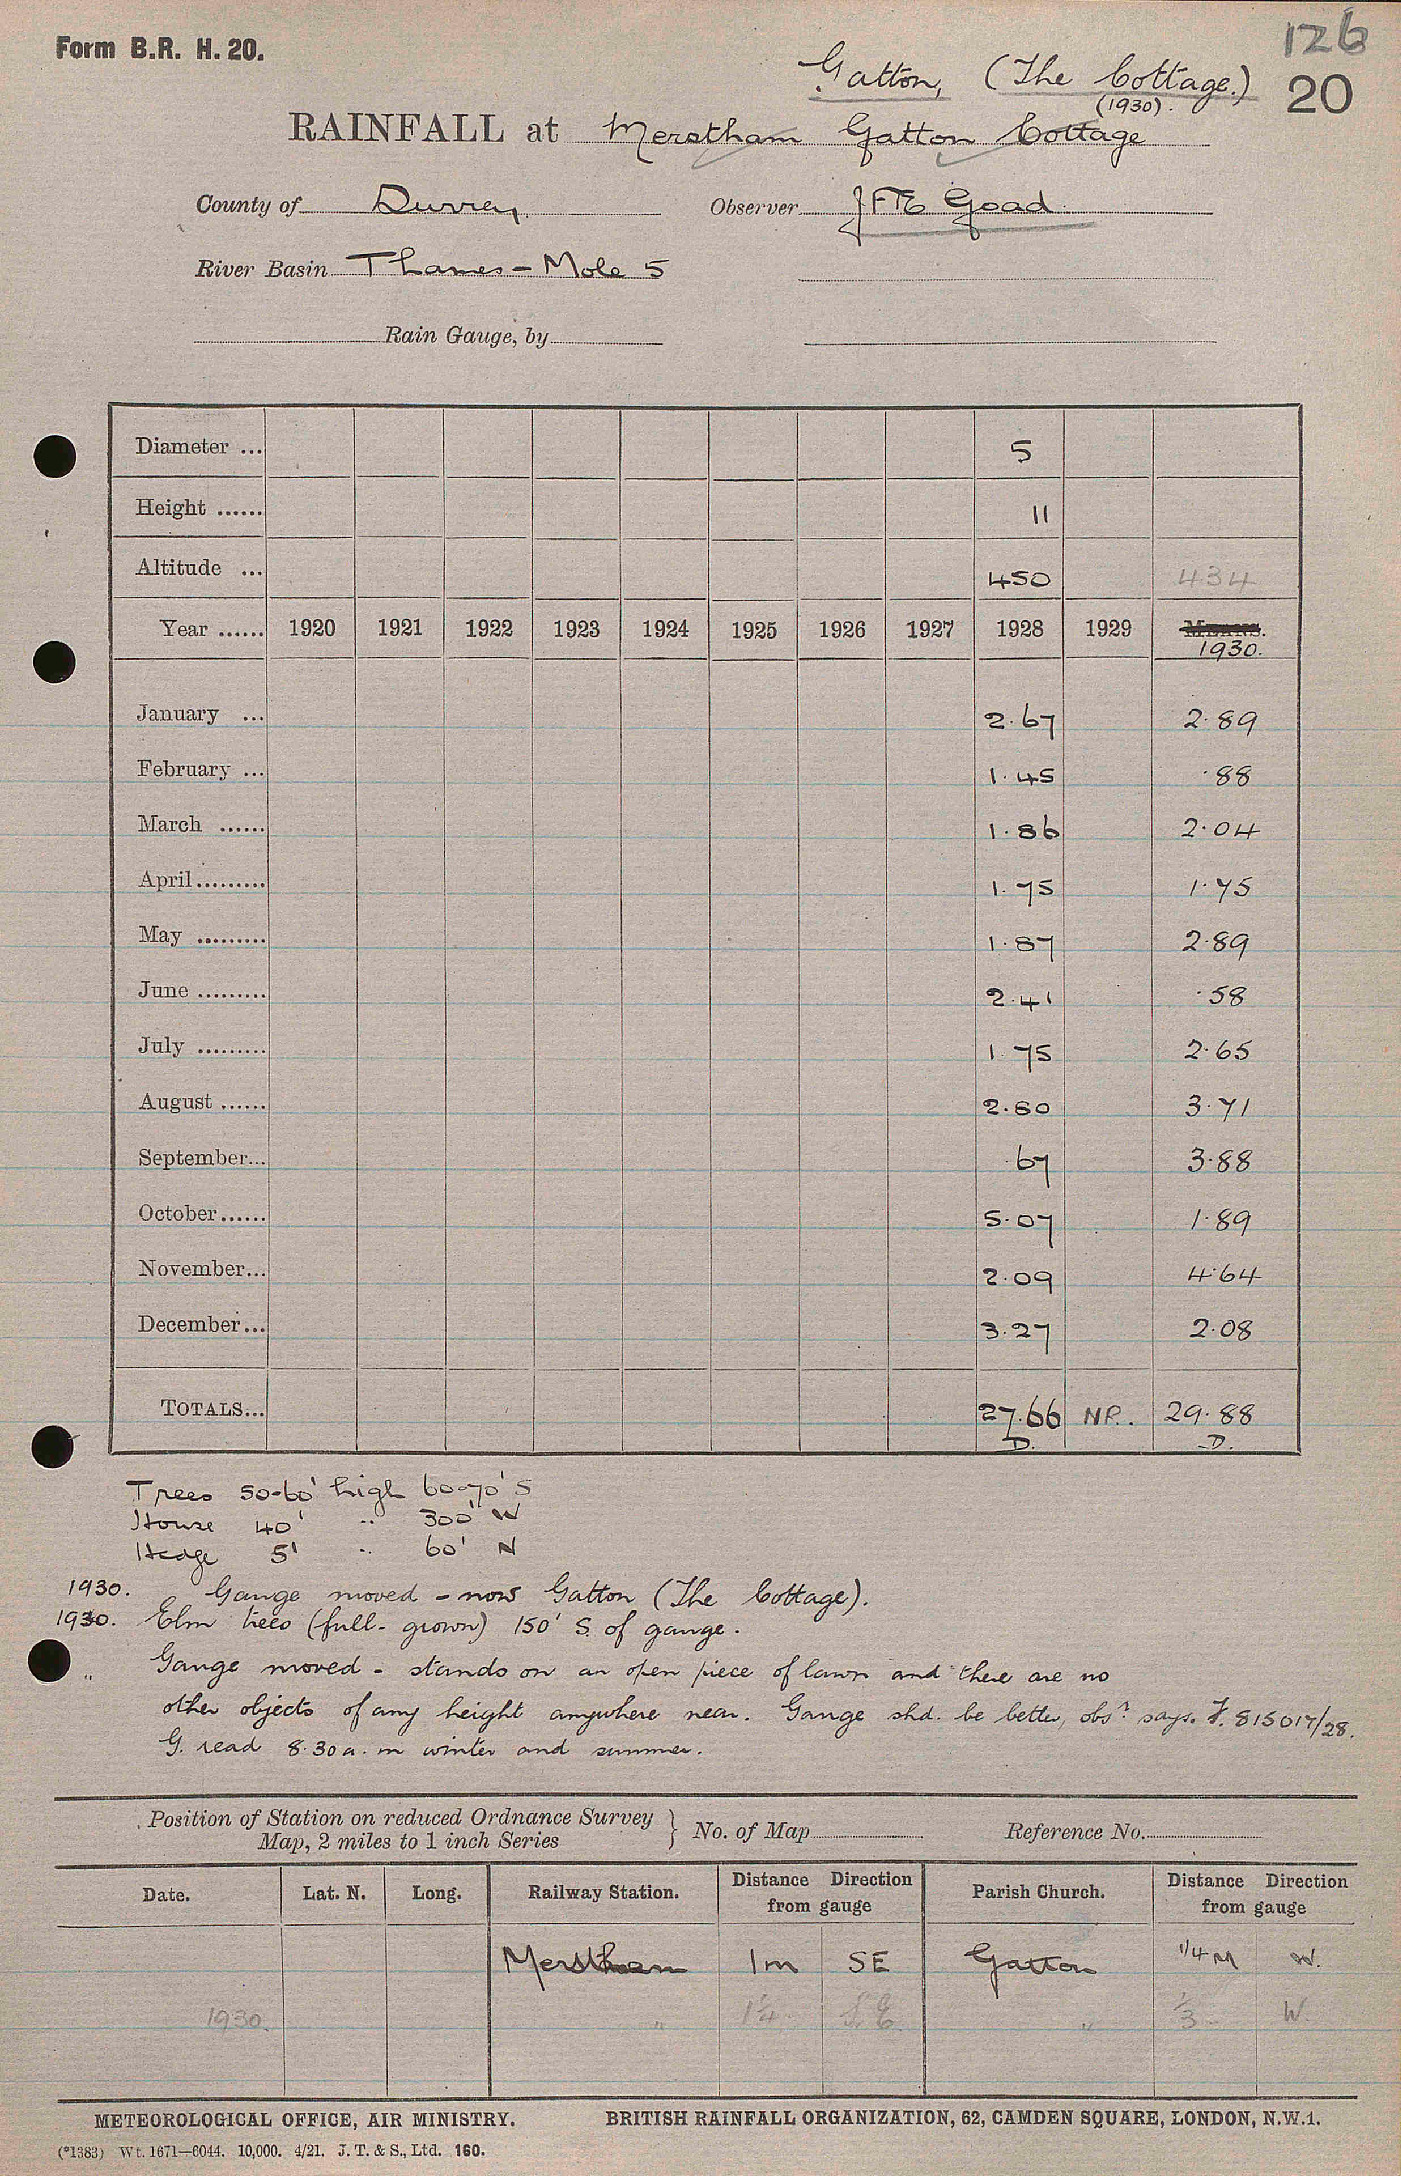 Form B.R. H. 20.
126
20
Gatton, (The Cottage.)
(1930).
RAINFALL at Merstham Gatton Cottage
County of Surrey. Observer J F E Goad
River Basin Thames - Mole 5
Rain Gauge, by
Diameter ... 5
Height ...... 11
Altitude ... 450 434
Year ...... 1920 1921 1922 1923 1924 1925 1926 1927 1928 1929 MEANS.
1930.
January ... 2.67 2.89
February ... 1.45 .88
March ...... 1.86 2.04
April ......... 1.75 1.75
May ......... 1.87 2.89
June ......... 2.41 .58
July ......... 1.75 2.65
August ...... 2.80 3.71
September... .67 3.88
October ...... 5.07 1.89
November... 2.09 4.64
December... 3.27 2.08
TOTALS... 27.66 NP.. 29.88
D. D.
Trees 50-60' high 60-70' S
House 40' " 300' W
Hedge 5' " 60' N
1930. Gauge moved - now Gatton (The Cottage).
1930. Elm trees (full-grown) 150' S. of gauge.
" Gauge moved - stands on an open piece of lawn and there are no
other objects of any height anywhere near. Gauge shd. be better, obsr. says. F. 815017/28.
G. read 8.30 a.m winter and summer.
Position of Station on reduced Ordnance Survey
Map, 2 miles to 1 inch Series } No. of Map Reference No.
Date. Lat. N. Long. Railway Station. Distance Direction from gauge Parish Church. Distance Direction from gauge
Merstham 1m SE Gatton 1/4 M W.
1930 " 1¼ S.E. " 1/3 W.
METEOROLOGICAL OFFICE, AIR MINISTRY. BRITISH RAINFALL ORGANIZATION, 62, CAMDEN SQUARE, LONDON, N.W.1.
(*1383) Wt. 1671—6044. 10,000. 4/21. J. T. & S., Ltd. 160.